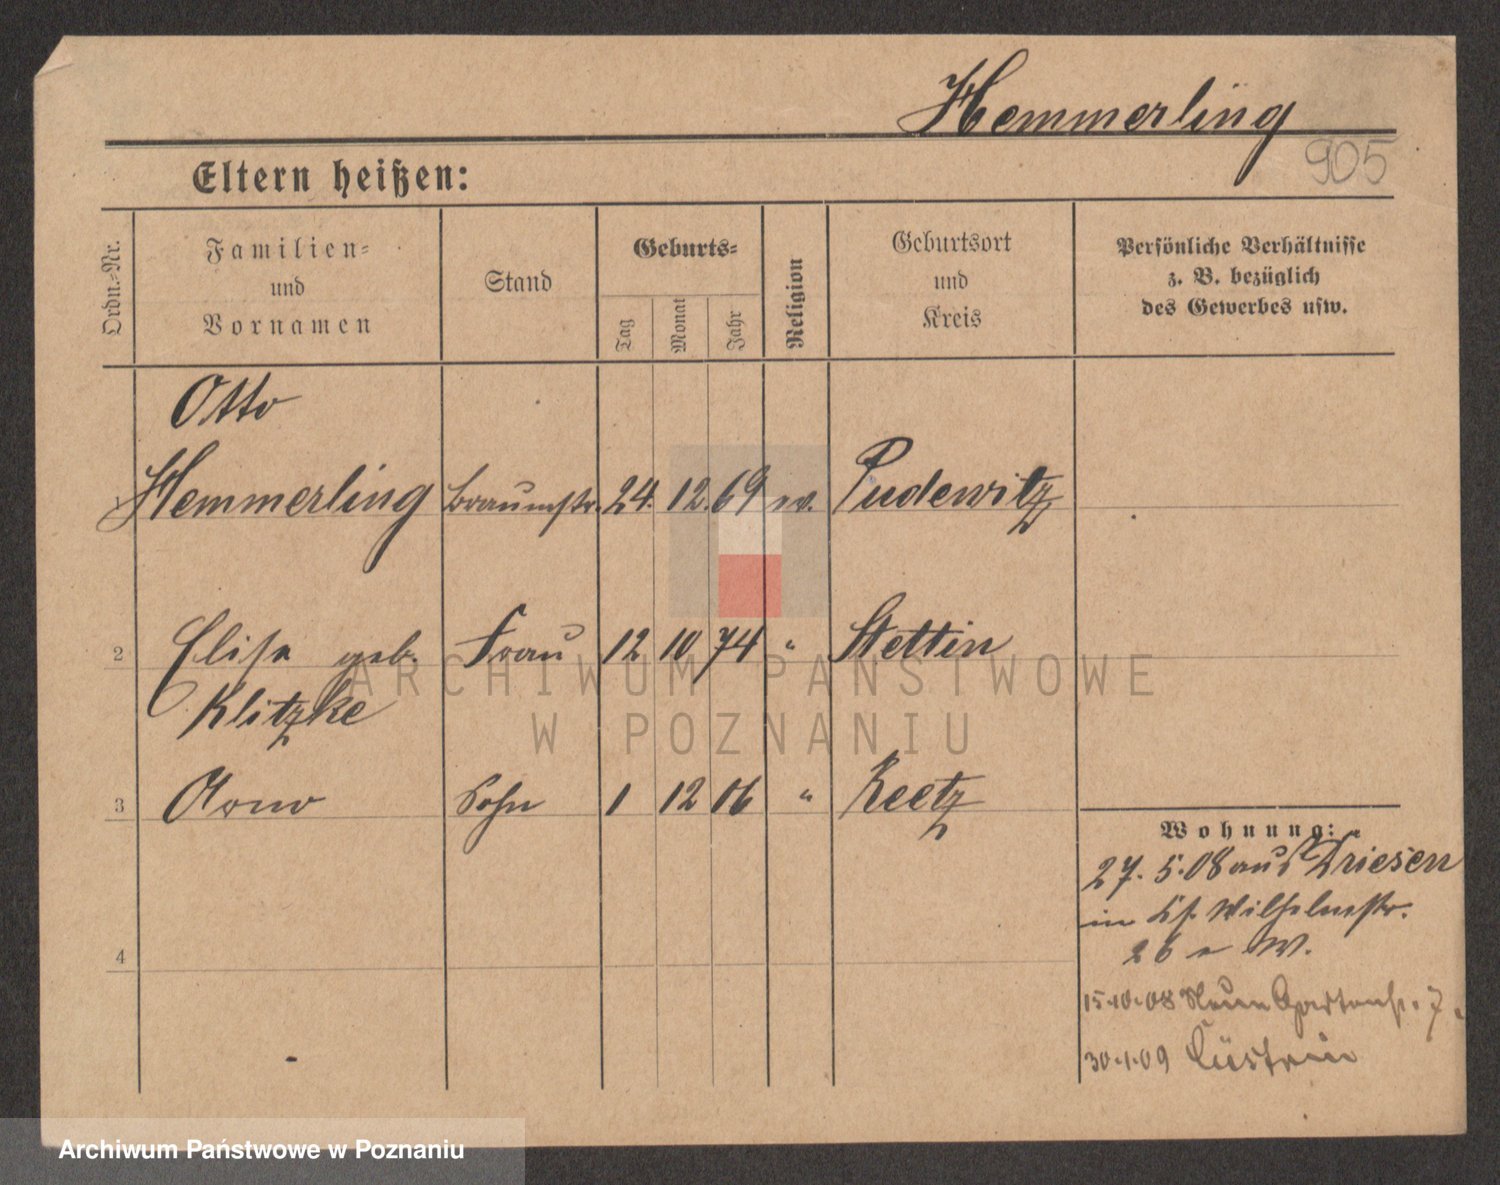 Hemmerling
905
Eltern heißen:
Ordn.-Nr.
Familien-
und
Vornamen
Stand
Geburts-
Tag
Monat
Jahr
Religion
Geburtsort
und
Kreis
Persönliche Verhältnisse
z. B. bezüglich
des Gewerbes usw.
Otto
Hemmerling Braumstr. 24. 12. 69 ev. Pudewitz
2 Elise geb. Frau 12 10 74 " Stettin
Klitzke
3 Arno Sohn 1 12 06 " Reetz
Wohnung:
27. 5. 08 aus Driesen
in Wilhelmstr.
26 W.
4
15.10.08 Neue Gartenstr. 7.
30.1.09 Cüstrin
ARCHIWUM PAŃSTWOWE
W POZNANIU
Archiwum Państwowe w Poznaniu